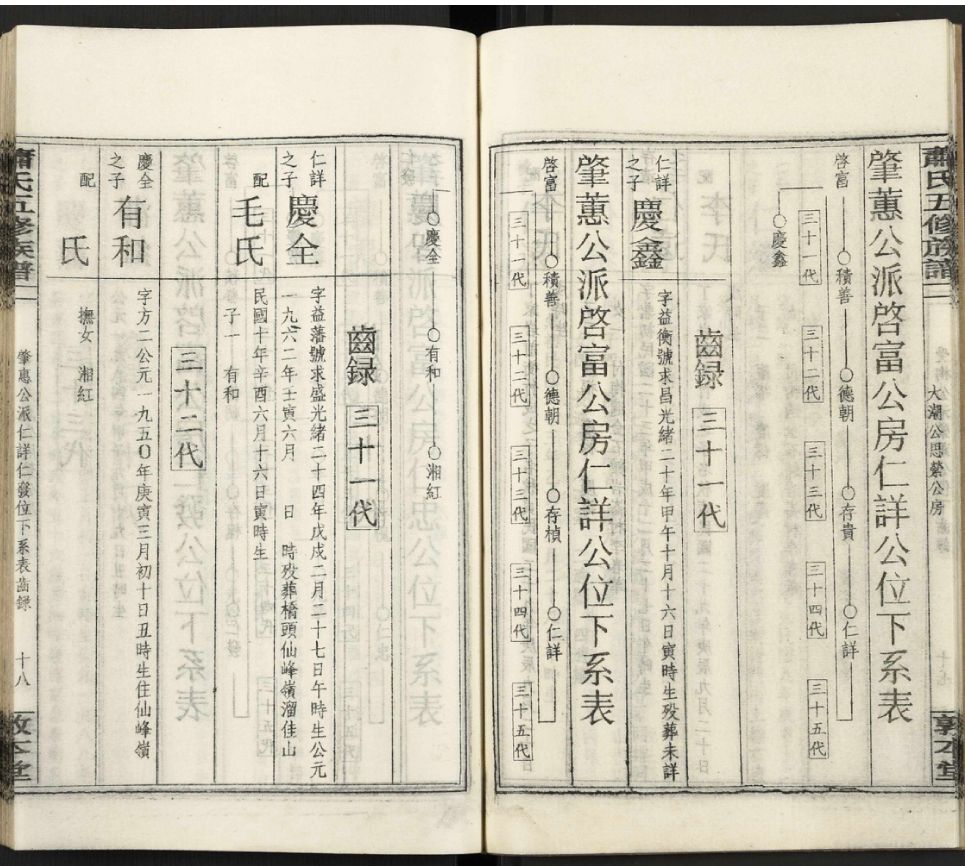 蕭氏五修族譜
大潮公思縈公房
敦本堂
肇蕙公派啓富公房仁詳公位下系表
啓富 積善 德朝 存貴 仁詳
三十一代 三十二代 三十三代 三十四代 三十五代
慶鑫
齒録 三十一代
仁詳之子 慶鑫 字益衡號求昌光緒二十年甲午十月十六日寅時生殁葬未詳
肇蕙公派啓富公房仁詳公位下系表
啓富 積善 德朝 存楨 仁詳
三十一代 三十二代 三十三代 三十四代 三十五代
慶全 有和 湘紅
齒録 三十一代
仁詳之子 慶全 字益藩號求盛光緒二十四年戊戌二月二十七日午時生公元
一九六二年壬寅六月 日 時殁葬橋頭仙峰嶺溜佳山
配 毛氏 民國十年辛酉六月十六日寅時生
子一 有和
三十二代
慶全之子 有和 字方二公元一九五〇年庚寅三月初十日丑時生住仙峰嶺
配 氏 撫女 湘紅
蕭氏五修族譜
肇惠公派仁詳仁發位下系表齒録 十八
敦本堂